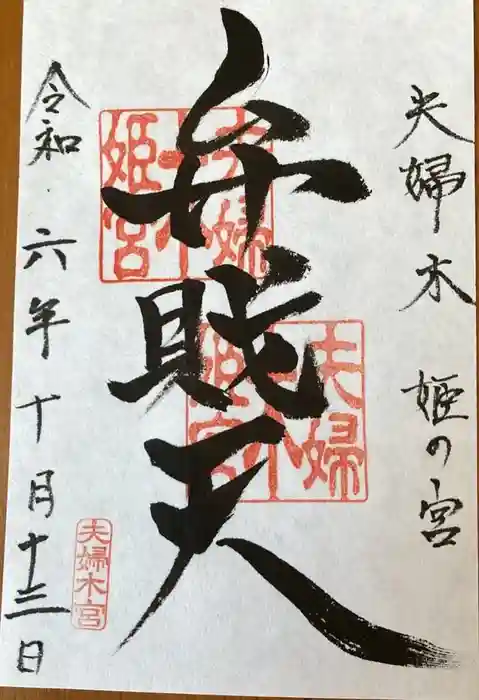 夫婦木 姫の宮
弁財天
令和・六年十月十三日
夫婦木
姫宮
夫婦木
姫宮
夫婦木宮